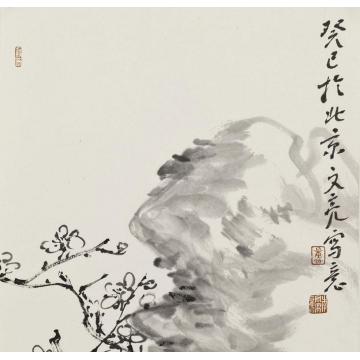 癸巳於北京文亮写意